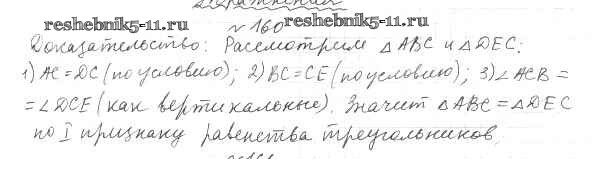 reshebnik5-11.ru
№ 160
reshebnik5-11.ru
Доказательство: Рассмотрим △ABC и △DEC:
1) AC = DC (по условию); 2) BC = CE (по условию); 3) ∠ACB =
= ∠DCE (как вертикальные). Значит △ABC = △DEC
по I признаку равенства треугольников.